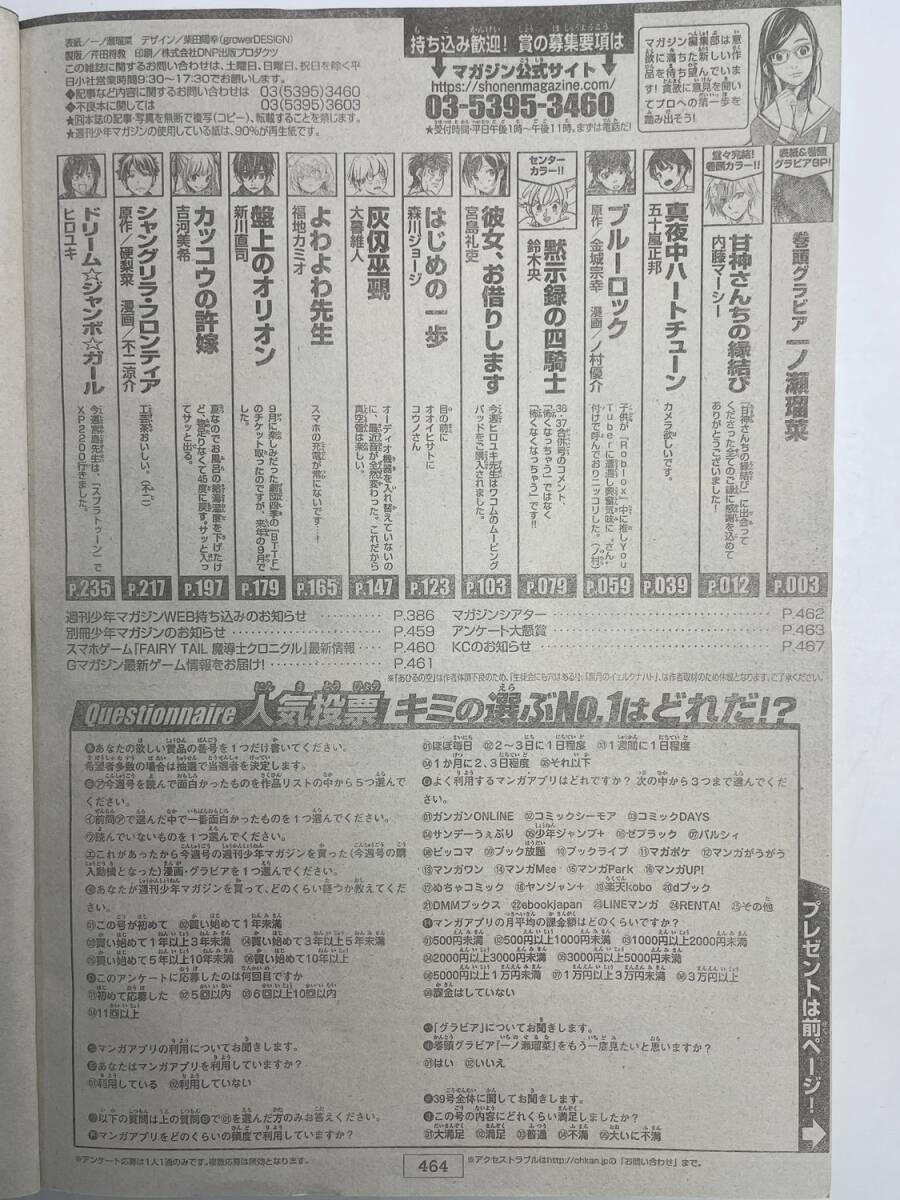 表紙/一ノ瀬瑠菜 デザイン/柴田陽幸(growerDESIGN)
製版/芹田将教 印刷/株式会社DNP出版プロダクツ
この雑誌に関するお問い合わせは、土曜日、日曜日、祝日を除く平
日小社営業時間9:30〜17:30でお願いします。
◆記事など内容に関するお問い合わせは 03(5395)3460
◆不良本に関しては 03(5395)3603
★本誌の記事・写真を無断で複写(コピー)、転載することを禁じます。
★週刊少年マガジンの使用している紙は、90%が再生紙です。
持ち込み歓迎! 賞の募集要項は
マガジン公式サイト
https://shonenmagazine.com/
03-5395-3460
★受付時間・平日午後1時〜午後11時。まずは電話だ!
マガジン編集部では意
欲に満ちた新しい作
品を待ち望んでいま
す!貪欲に意見を聞い
てプロへの第一歩を
踏み出そう!
表紙&巻頭グラビア8P!
巻頭グラビア 一ノ瀬瑠菜
P.003
堂々完結!巻頭カラー!!
甘神さんちの縁結び
内藤マーシー
『甘神さんちの縁結び』に出会って
くださった全てのご縁に感謝を込めて
ありがとうございました!
P.012
真夜中ハートチューン
五十嵐正邦
カメラ欲しいです。
P.039
ブルーロック
原作/金城宗幸 漫画/ノ村優介
子供が『Roblox』中に推しYou
Tuberに遭遇し興奮気味に、さん
付けで呼んでおりニッコリした。(ノ村)
P.059
センターカラー!!
黙示録の四騎士
鈴木央
36・37合併号のコメント、
「怖くなっちゃう」ではなく
「怖くなくなっちゃう」です!!
P.079
彼女、お借りします
宮島礼吏
今週ヒロユキ先生はワコムのムービング
パッドをご購入されました。
P.103
はじめの一歩
森川ジョージ
目の前に
オオイヒサトに
コウノさん
P.123
灰仭巫覡
大暮維人
オーディオ機器を入れ替えていないの
に、最近音が全然変わった。これだから
真空管は楽しい。
P.147
よわよわ先生
福地カミオ
スマホの充電が常にないです…!
P.165
盤上のオリオン
新川直司
9月に楽しみだった劇団四季の『BTTF』
のチケット取ったのですが、来年の9月で
した。
P.179
カッコウの許嫁
吉河美希
夏なのでお風呂の給湯温度を下げたけ
ど、物足りなくて45度に戻す。サッと入っ
てサッと出る。
P.197
シャングリラ・フロンティア
原作/硬梨菜 漫画/不二涼介
工芸茶おいしい。(不二)
P.217
ドリーム☆ジャンボ☆ガール
ヒロユキ
今週宮島先生は、『スプラトゥーン』で
XP2200行きました。
P.235
週刊少年マガジンWEB持ち込みのお知らせ P.386
別冊少年マガジンのお知らせ P.459
スマホゲーム『FAIRY TAIL 魔導士クロニクル』最新情報 P.460
Gマガジン最新ゲーム情報をお届け! P.461
マガジンシアター P.462
アンケート大懸賞 P.463
KCのお知らせ P.467
※『あひるの空』は作者体調不良のため、『生徒会にも穴はある!』、『蒼月のイェルクナハト』は作者取材のため休載となります。ご了承ください。
Questionnaire 人気投票 キミの選ぶNo.1はどれだ!?
あなたの欲しい賞品の番号を1つだけ書いてください。
希望者多数の場合は抽選で当選者を決定します。
㋐今週号を読んで面白かったものを作品リストの中から5つ選んで
ください。
㋑前問㋐で選んだ中で一番面白かったものを1つ選んでください。
㋒読んでいないものを1つ選んでください。
㋓これがあったから今週号の週刊少年マガジンを買った(今週号の購
入動機となった)漫画・グラビアを1つ選んでください。
あなたが週刊少年マガジンを買って、どのくらい経つか教えてくだ
さい。
01この号が初めて 02買い始めて1年未満
03買い始めて1年以上3年未満 04買い始めて3年以上5年未満
05買い始めて5年以上10年未満 06買い始めて10年以上
このアンケートに応募したのは何回目ですか
01初めて応募した 02 5回以内 03 6回以上10回以内
04 11回以上
マンガアプリの利用についてお聞きします。
あなたはマンガアプリを利用していますか?
01利用している 02利用していない
以下の質問は上の質問で01を選んだ方のみお答えください。
マンガアプリをどのくらいの頻度で利用していますか?
01ほぼ毎日 02 2〜3日に1日程度 03 1週間に1日程度
04 1か月に2、3日程度 05それ以下
よく利用するマンガアプリはどれですか? 次の中から3つまで選んでくだ
さい。
01ガンガンONLINE 02コミックシーモア 03コミックDAYS
04サンデーうぇぶり 05少年ジャンプ+ 06ゼブラック 07パルシィ
08ピッコマ 09ブック放題 10ブックライブ 11マガポケ 12マンガがうがう
13マンガワン 14マンガMee 15マンガPark 16マンガUP!
17めちゃコミック 18ヤンジャン+ 19楽天kobo 20dブック
21DMMブックス 22ebookjapan 23LINEマンガ 24RENTA! 25その他
マンガアプリの月平均の課金額はどのくらいですか?
01 500円未満 02 500円以上1000円未満 03 1000円以上2000円未満
04 2000円以上3000円未満 05 3000円以上5000円未満
06 5000円以上1万円未満 07 1万円以上3万円未満 08 3万円以上
09課金はしていない
「グラビア」についてお聞きします。
巻頭グラビア「一ノ瀬瑠菜」をもう一度見たいと思いますか?
01はい 02いいえ
39号全体に関してお聞きします。
この号の内容にどれくらい満足しましたか?
01大満足 02満足 03普通 04不満 05大いに不満
プレゼントは前ページ!
※アンケート応募は1人1通のみです。複数応募は無効となります。
464
※アクセストラブルはhttp://ohkan.jpの「お問い合わせ」まで。